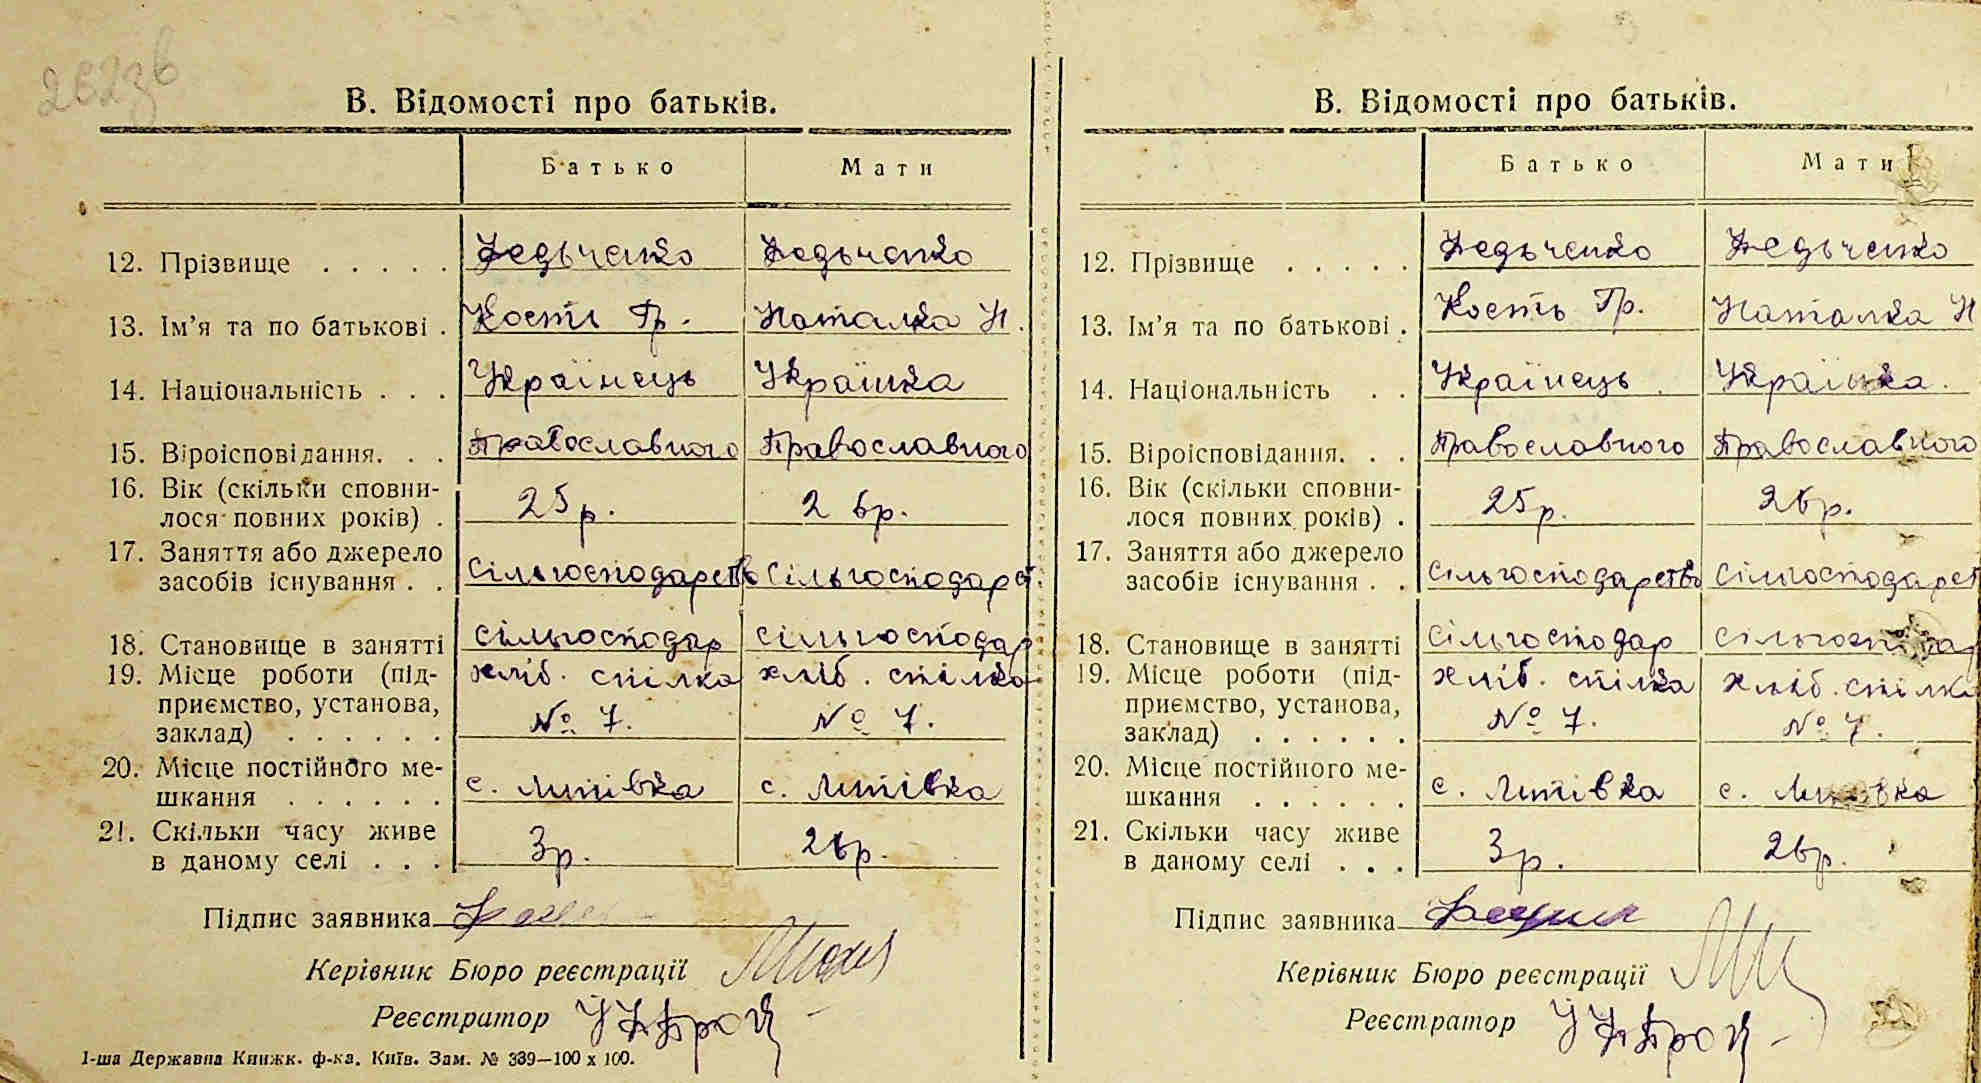 262зв
В. Відомості про батьків.
Батько Мати
12. Прізвище . . . . . Федьченко Федьченко
13. Ім'я та по батькові . Кость Гр. Наталка Н.
14. Національність . . . Українець Українка
15. Віроісповідання. . . Православного Православного
16. Вік (скільки сповни-
лося повних років) . 25р. 26р.
17. Заняття або джерело
засобів існування . . Сільгосподарство Сільгосподарст
18. Становище в занятті сільгосподар сільгосподар
19. Місце роботи (під- хліб. спілка хліб. спілка
приємство, установа, № 7. № 7.
заклад) . . . . . .
20. Місце постійного ме-
шкання . . . . . . с. Липівка с. Липівка
21. Скільки часу живе
в даному селі . . . 3р. 26р.
Підпис заявника
Керівник Бюро реєстрації
Реєстратор
1-ша Державна Книжк. ф-ка, Київ. Зам. № 339—100 х 100.
В. Відомості про батьків.
Батько Мати
12. Прізвище . . . . . Федьченко Федьченко
13. Ім'я та по батькові . Кость Гр. Наталка Н
14. Національність . . Українець Українка.
15. Віроісповідання. . . Православного Православного
16. Вік (скільки сповни-
лося повних років) . 25р. 26р.
17. Заняття або джерело
засобів існування . . Сільгосподарство Сільгосподарст
18. Становище в занятті Сільгосподар сільгосподар
19. Місце роботи (під- хліб. спілка хліб. спілка
приємство, установа, № 7. № 7.
заклад) . . . . . .
20. Місце постійного ме-
шкання . . . . . . с. Липівка с. Липівка
21. Скільки часу живе
в даному селі . . . 3р. 26р.
Підпис заявника
Керівник Бюро реєстрації
Реєстратор